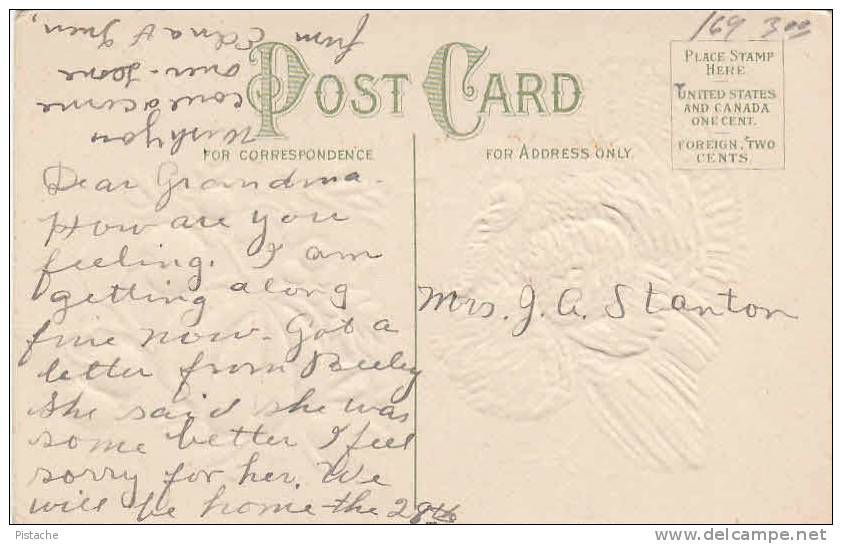 169 3.00
POST CARD
PLACE STAMP
HERE
UNITED STATES
AND CANADA
ONE CENT.
FOREIGN, TWO
CENTS.
FOR CORRESPONDENCE
FOR ADDRESS ONLY.
Dear Grandma.
How are you
feeling. I am
getting along
fine now. Got a
letter from
she said she was
some better I feel
sorry for her. We
will be home the 28th
wish you
could come
over. Love
from Edna &
Mrs. J. A. Stanton
Pistache
delcampe.net